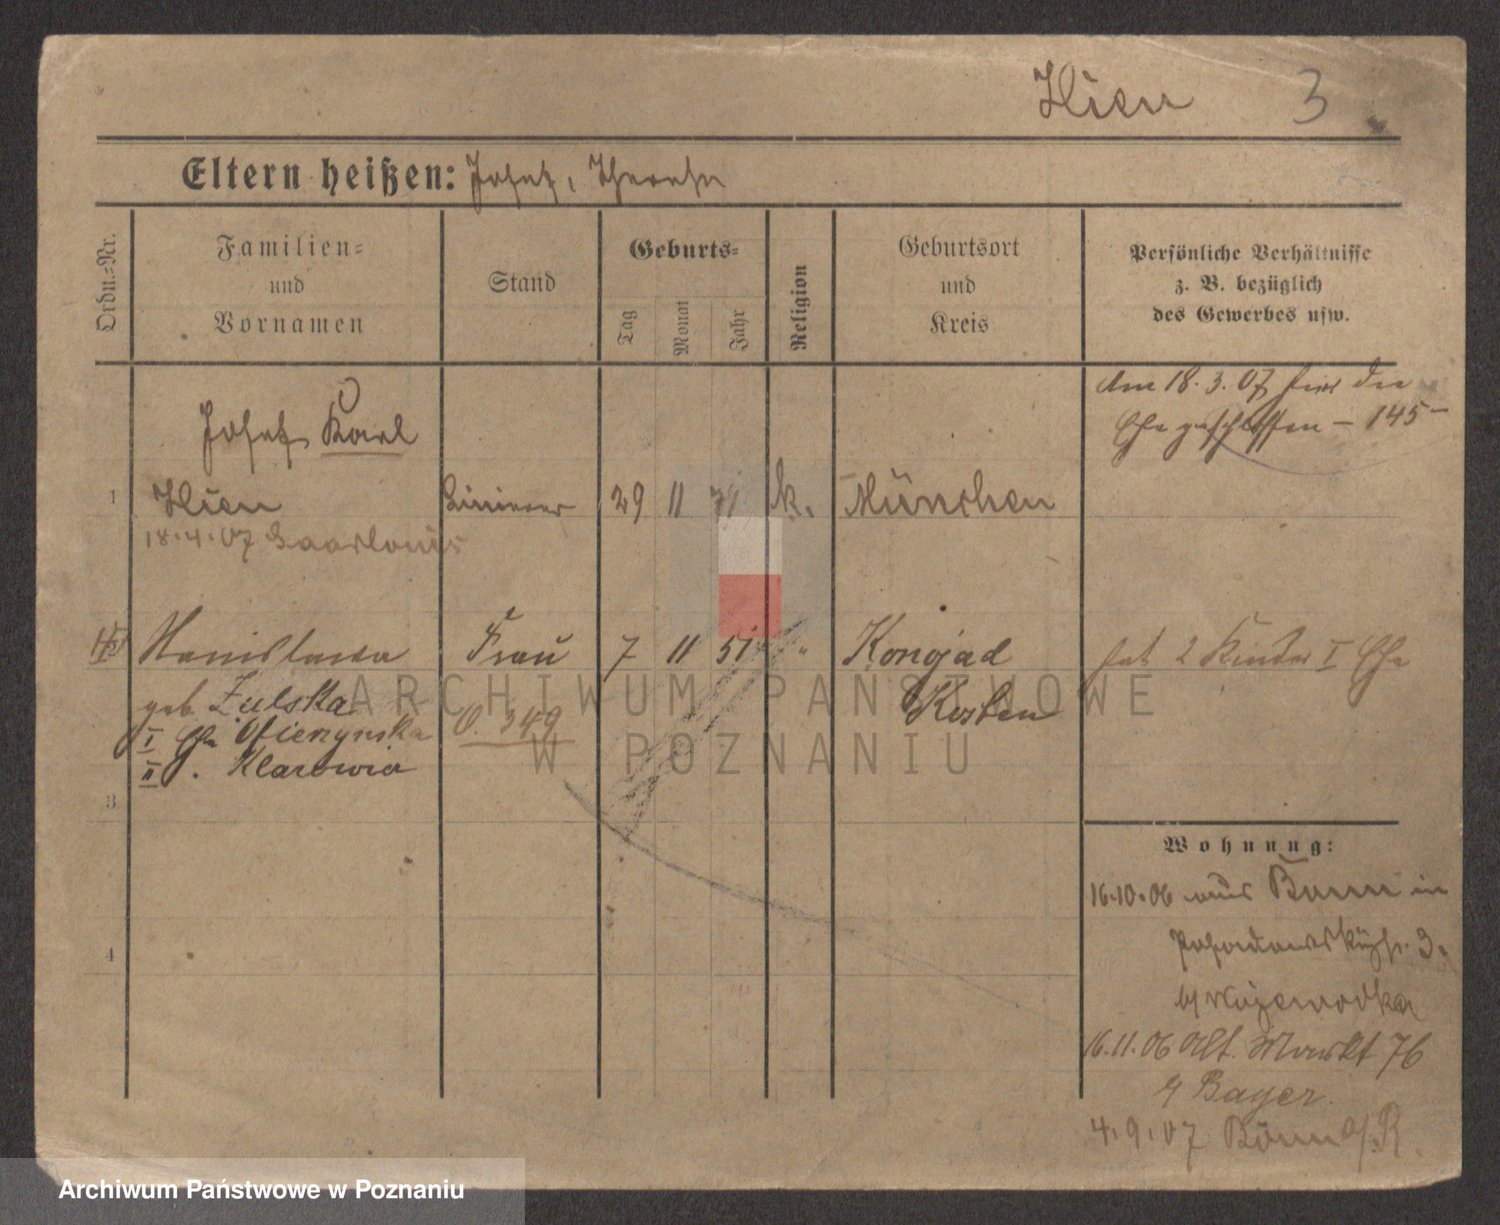 Hien 3
Eltern heißen: Josef, Therese
Ordn.-Nr.
Familien-
und
Vornamen
Stand
Geburts-
Tag
Monat
Jahr
Religion
Geburtsort
und
Kreis
Persönliche Verhältnisse
z. B. bezüglich
des Gewerbes usw.
Am 18.3.07 hier die
Ehe geschlossen – 145 –
Josef Karl
1 Hien 29 11 k. München
18.4.07 Saarlouis
Stanislawa Frau 7 11 51 " Konojad hat 2 Kinder I Ehe
geb. Zulska O. 349 Kosten
I Ehe
II
3
4
ARCHIWUM PAŃSTWOWE
W POZNANIU
Wohnung:
16.10.06 aus Bonn in
3.
b/
16.11.06 Alt. Markt 76
b/ Bayer
4.9.07 Bonn a/R.
Archiwum Państwowe w Poznaniu